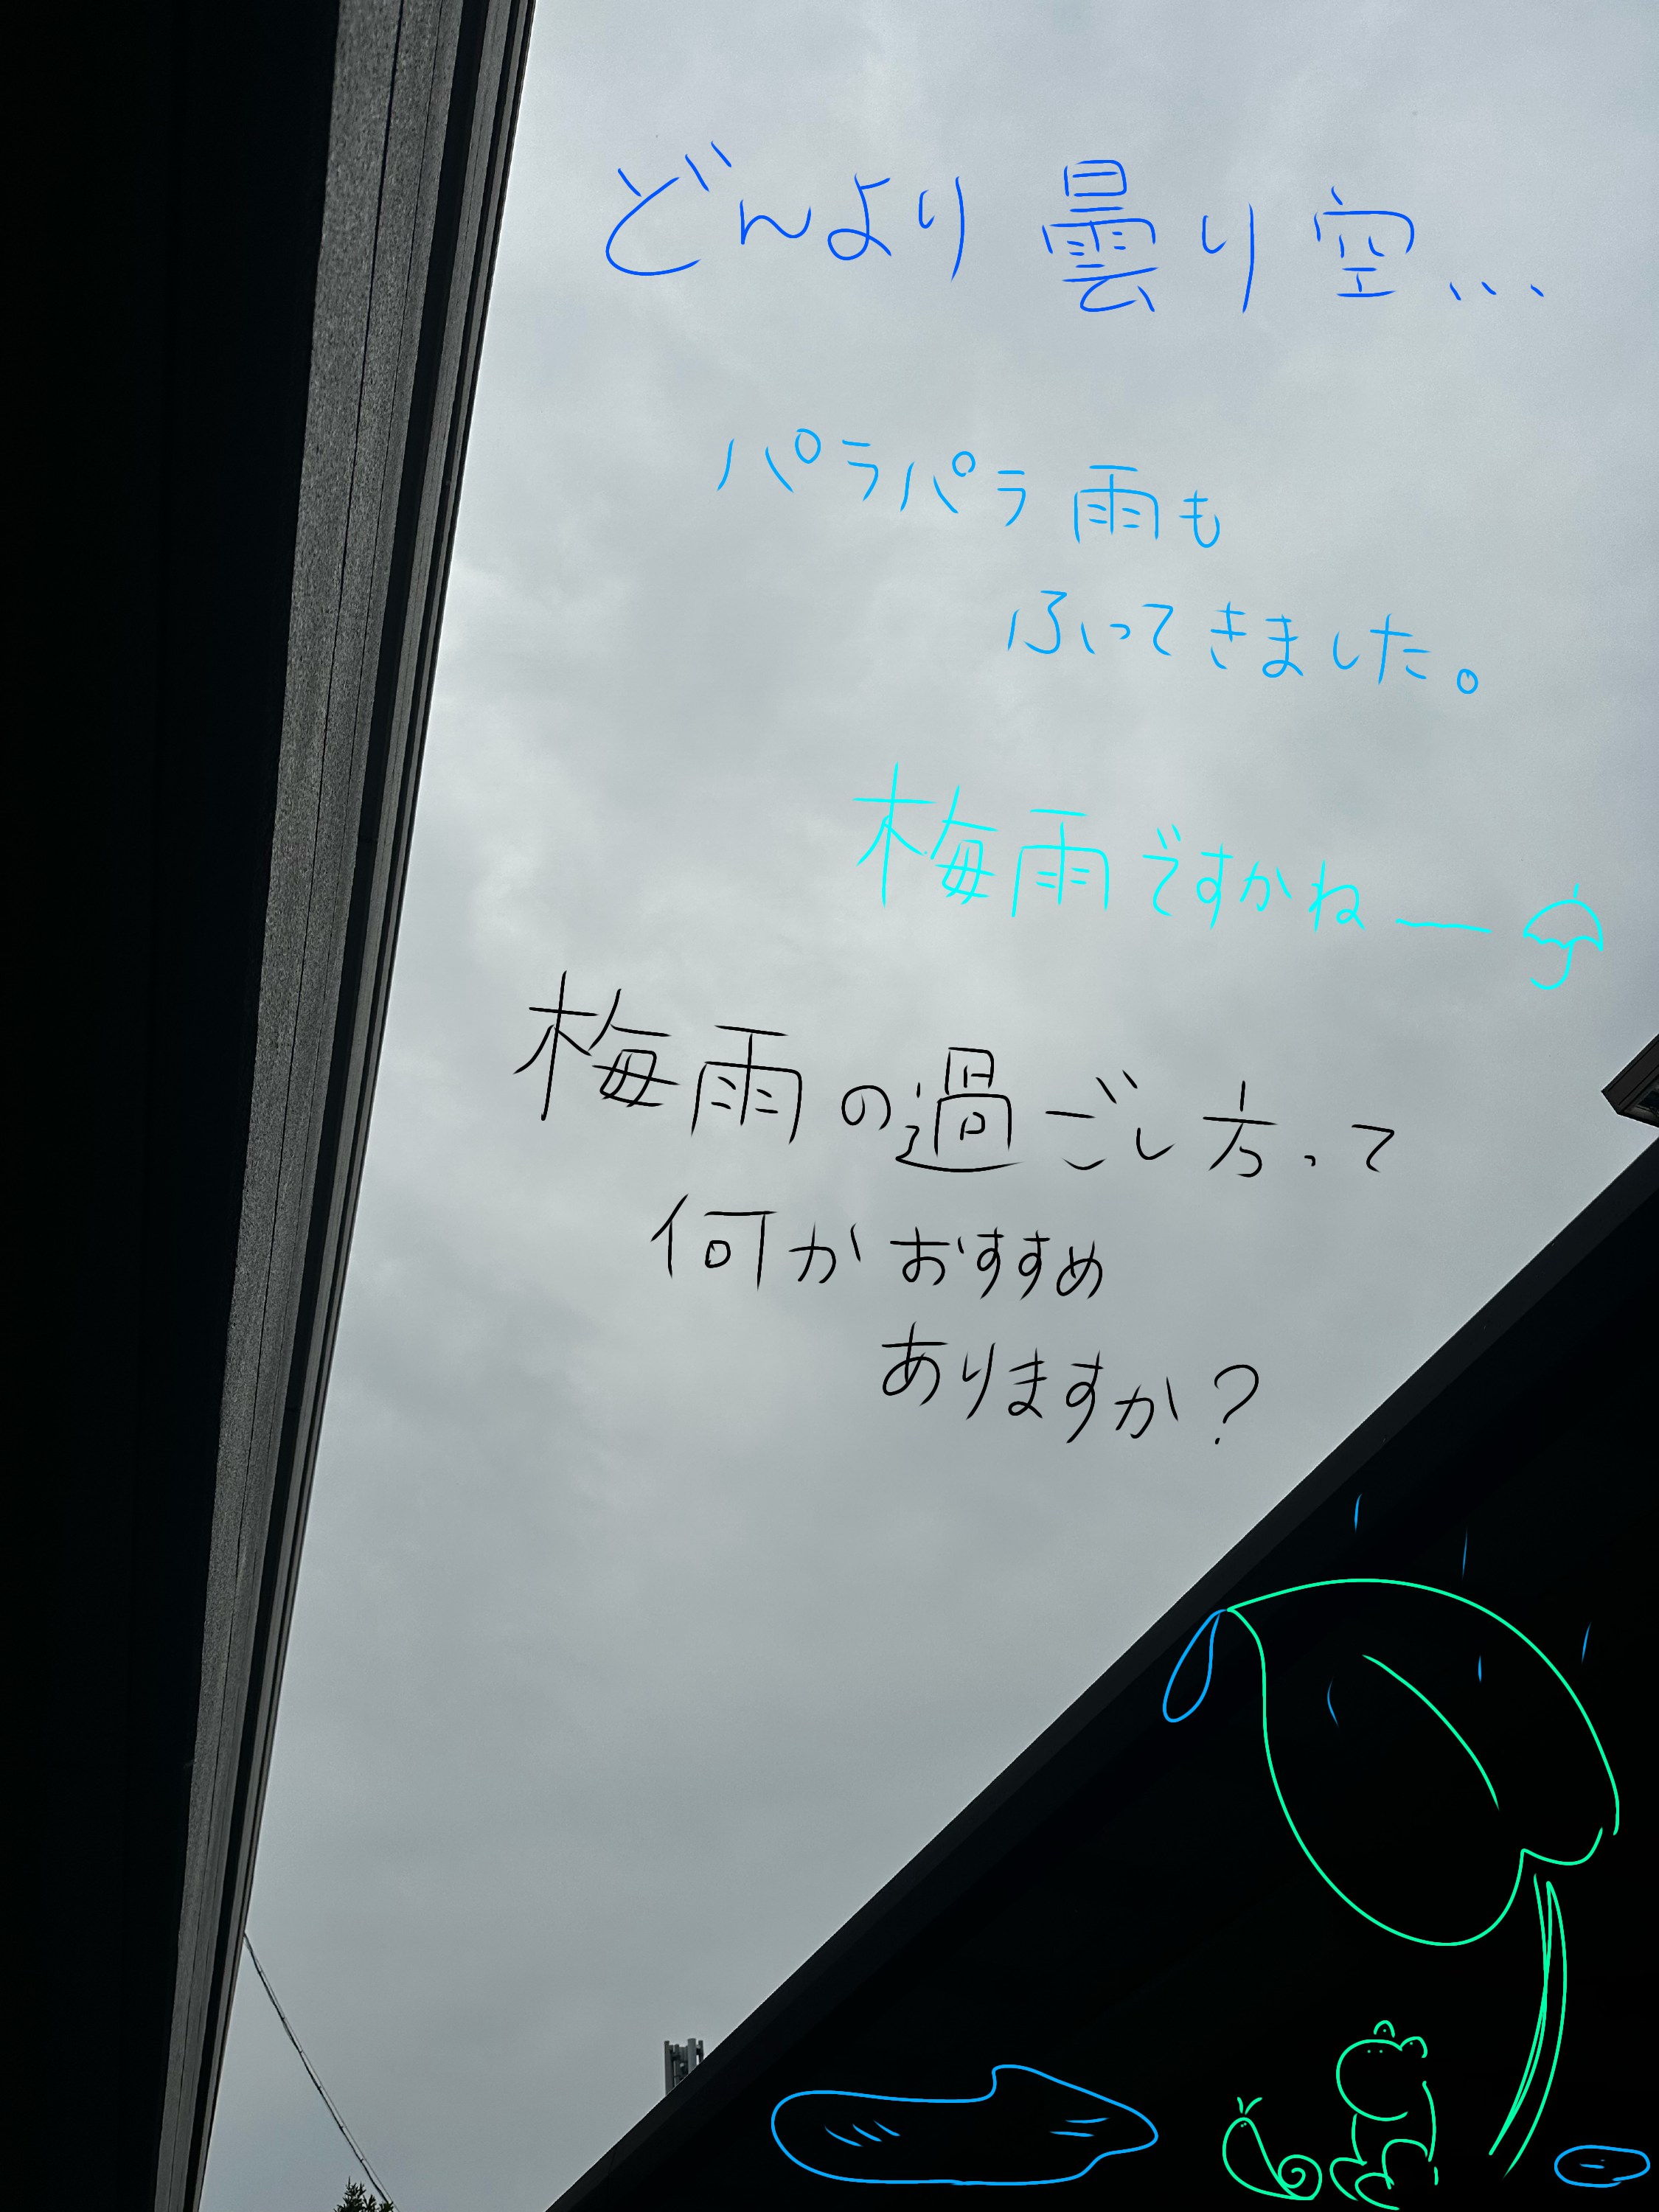 どんより曇り空...
パラパラ雨も
ふってきました。
梅雨ですかねー
梅雨の過ごし方って
何かおすすめ
ありますか?